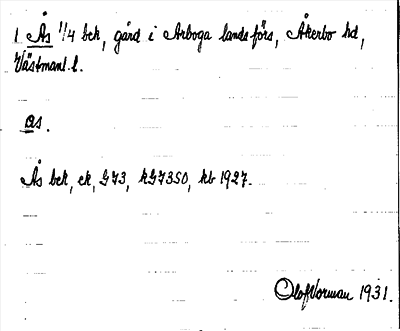 1 Ås 1/4 bek, gård i Arboga landsförs, Åkerbo hd,
Västmanl. l.
ɑs.
Ås bek, ek, G73, kG73SO, kb 1927.
Olof Vorman 1931.